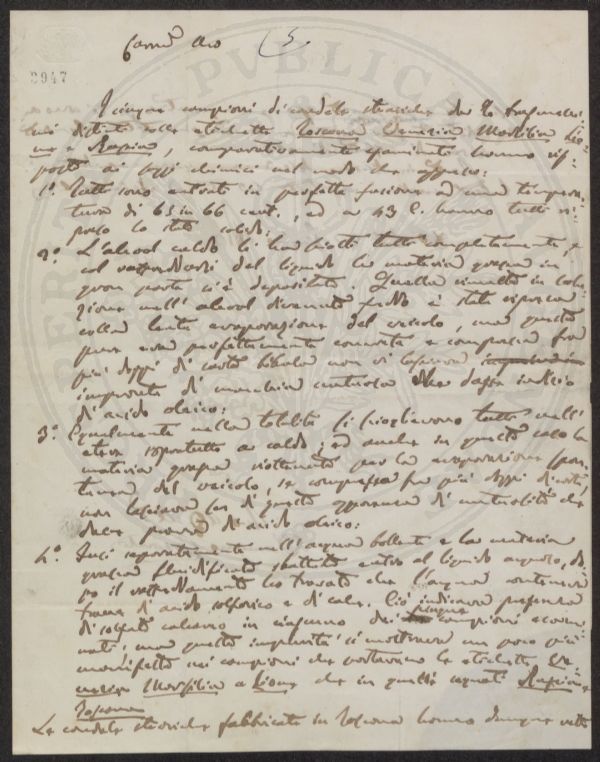 3947
5
I cinque campioni di candele steariche dei 20 frammenti
distinti colle etichette Toscana Venezia Marsiglia Lio-
ne e Russia, comparativamente esaminate hanno ris-
posto ai saggi chimici nel modo che appresso:
1.° Tutti sono entrati in perfetta fusione ad una tempera-
tura di 65 in 66 cent., ed a 43 C. hanno tutti ri-
preso lo stato solido:
2.° L'alcool caldo li ha sciolti tutti completamente, e
col raffreddarsi del liquido la materia grassa in
gran parte si è depositata. Quella rimasta in solu-
zione nell'alcool divenuto freddo è stata ripresa
colla lenta evaporazione del veicolo, ma questa
pure era perfettamente concreta e compressa fra
più doppi di carta bibula non vi lasciava
impronta di macchia untuosa che dasse indizio
di acido oleico:
3.° Egualmente nella totalità si scioglievano tutti nell'
etere soprattutto a caldo; ed anche in questo caso la
materia grassa riottenuta per la evaporazione spon-
tanea del veicolo, se compressa fra più doppi di carta,
non lasciava in questa apparenza di untuosità che
desse prova di acido oleico:
4.° Fusi separatamente nell'acqua bollente e la materia
grassa fluidificata sbattuta entro al liquido acquoso, do-
po il raffreddamento ho trovato che l'acqua conteneva
tracce di acido solforico e di calce. Ciò indicava presenza
di solfato calcareo in ciascuno dei cinque campioni accen-
nati, ma questa impurità si mostrava un poco più
manifesta nei campioni che portavano le etichette Ve-
nezia Marsiglia e Lione che in quelli segnati Russia e
Toscana
Le candele steariche fabbricate in Toscana hanno dunque